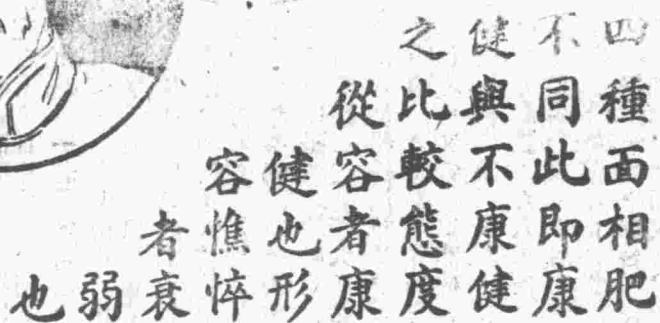 四種面相肥
不同此即康
健與不康健
之比較態度
從容者康
健也形
容憔悴
者衰
弱
也